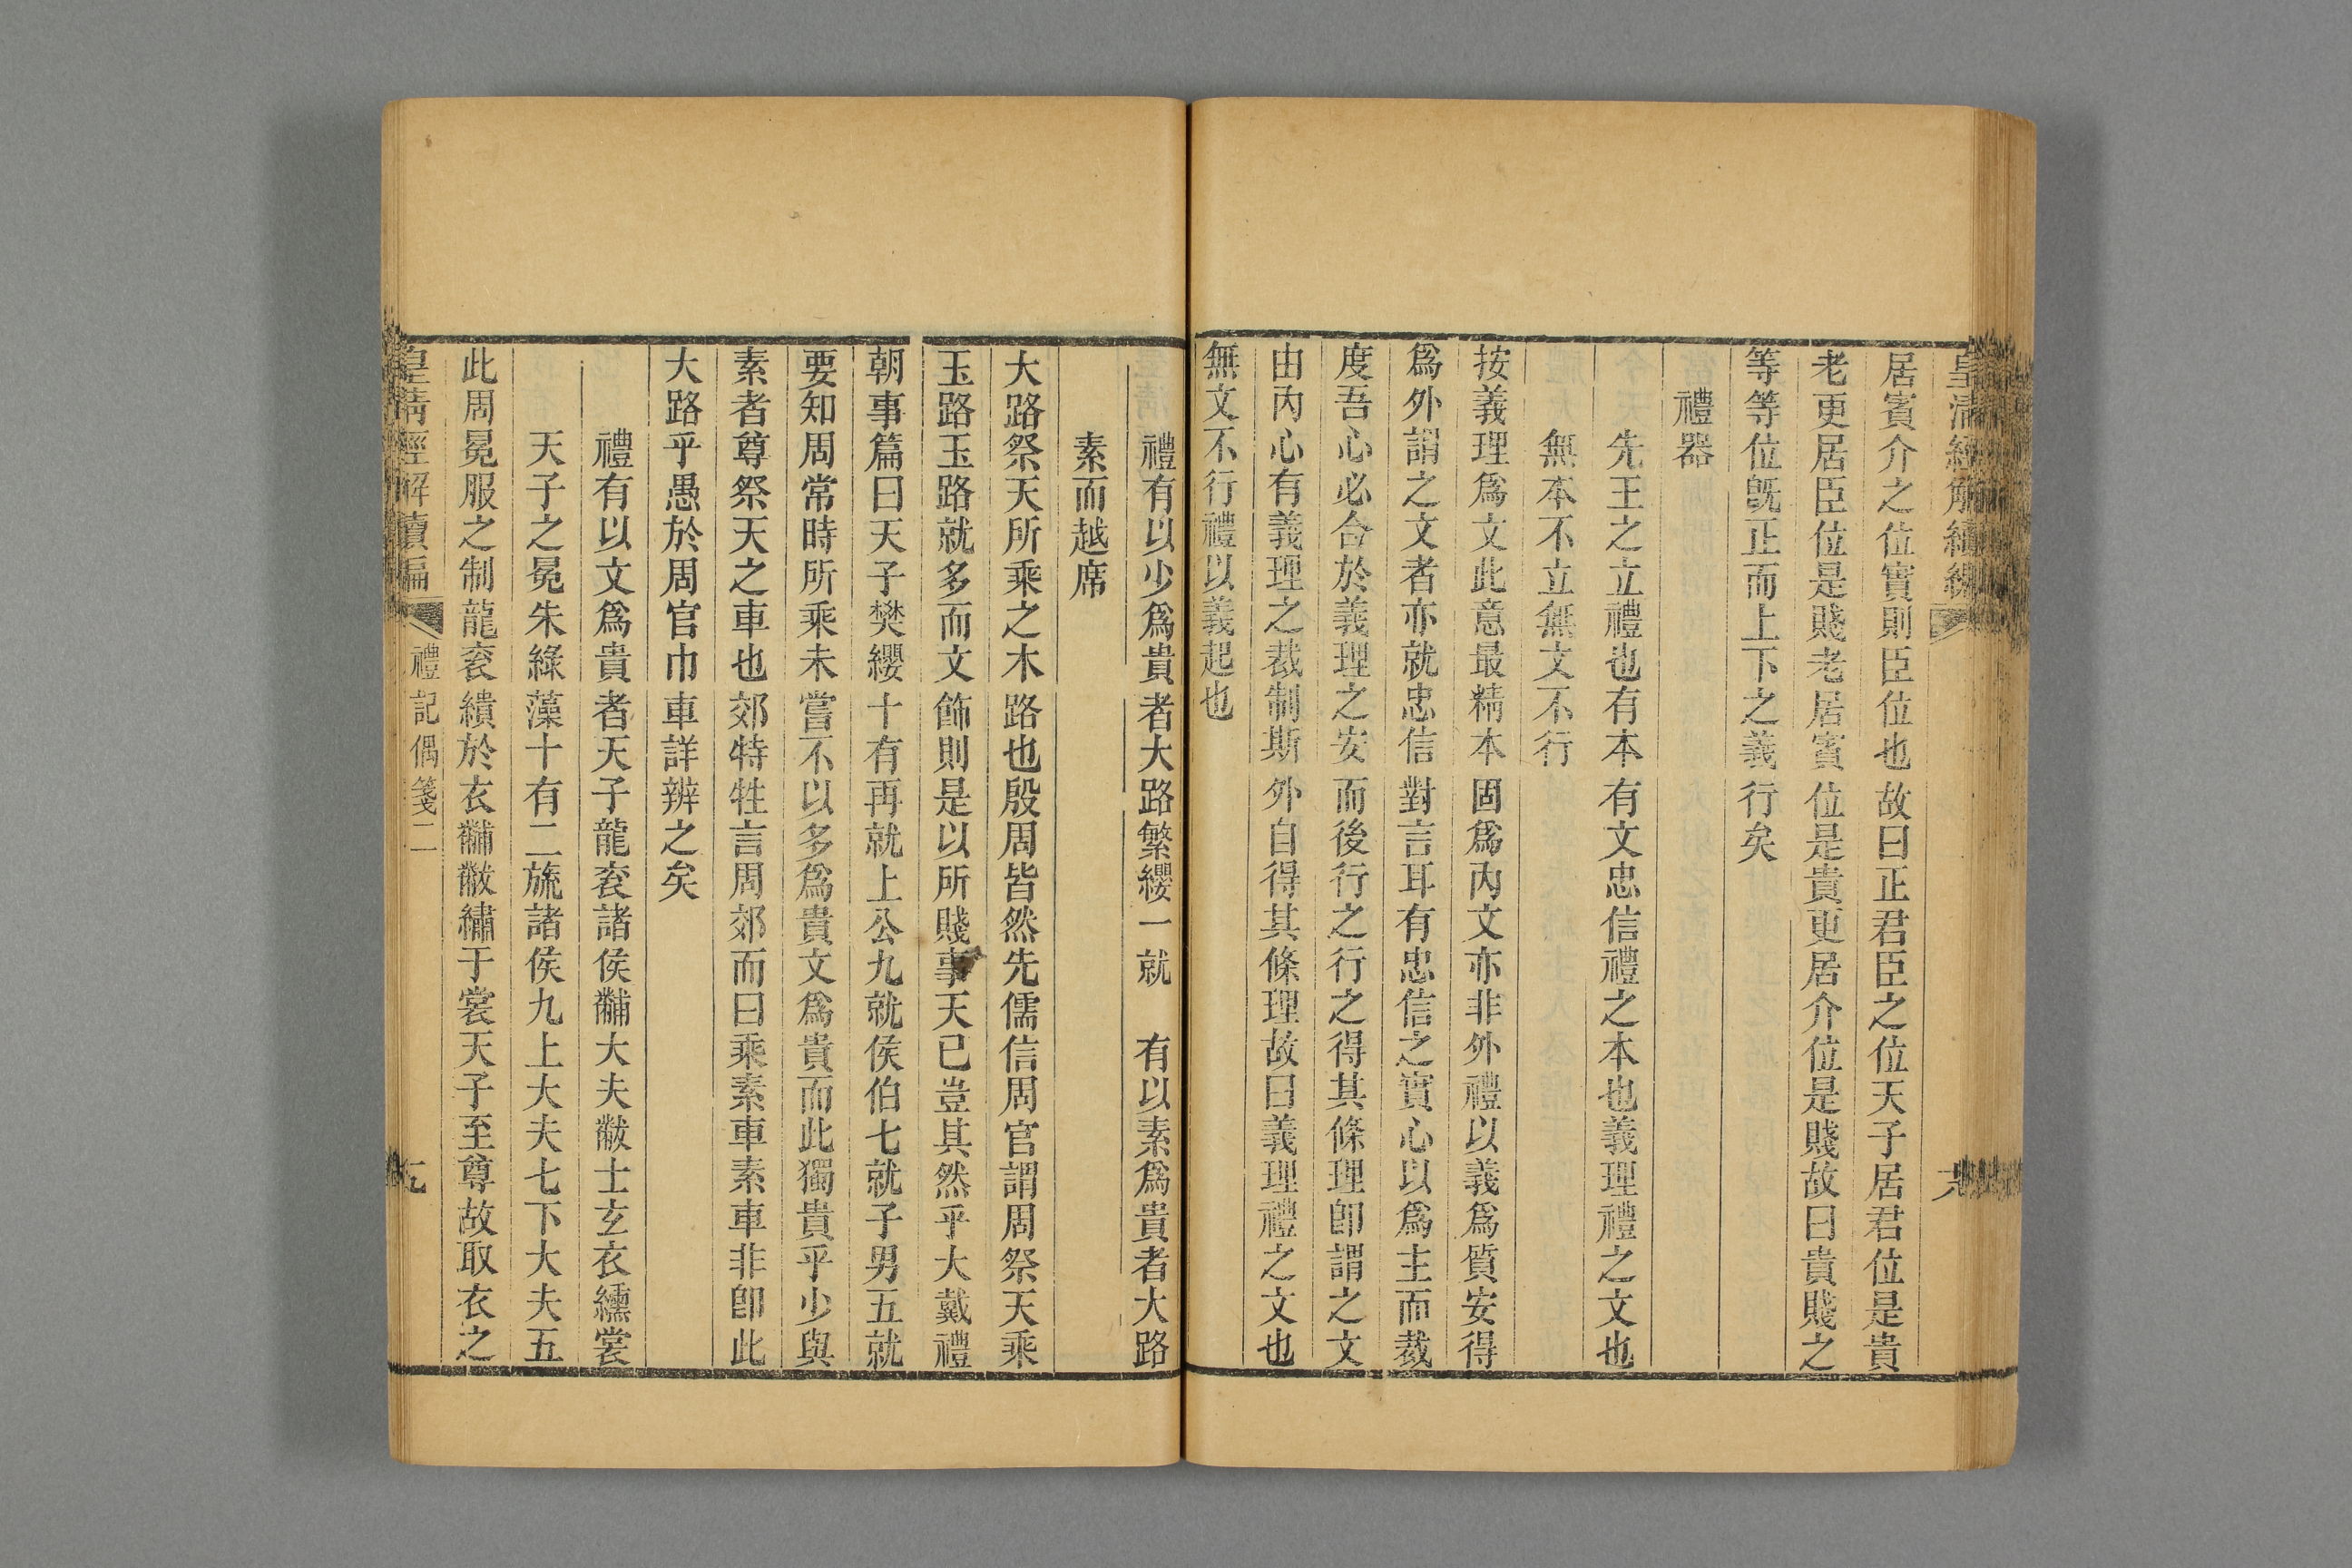 皇清經解續編
居賓介之位實則臣位也故曰正君臣之位天子居君位是貴
老更居臣位是賤老居賓位是貴更居介位是賤故曰貴賤之
等等位旣正而上下之義行矣
禮器
先王之立禮也有本有文忠信禮之本也義理禮之文也
無本不立無文不行
按義理爲文此意最精本固爲內文亦非外禮以義爲質安得
爲外謂之文者亦就忠信對言耳有忠信之實心以爲主而裁
度吾心必合於義理之安而後行之行之得其條理卽謂之文
由內心有義理之裁制斯外自得其條理故曰義理禮之文也
無文不行禮以義起也
禮有以少爲貴者大路繁纓一就　有以素爲貴者大路
素而越席
大路祭天所乘之木路也殷周皆然先儒信周官謂周祭天乘
玉路玉路就多而文飾則是以所賤事天已豈其然乎大戴禮
朝事篇曰天子樊纓十有再就上公九就侯伯七就子男五就
要知周常時所乘未嘗不以多爲貴文爲貴而此獨貴乎少與
素者尊祭天之車也郊特牲言周郊而曰乘素車素車非卽此
大路乎愚於周官巾車詳辨之矣
禮有以文爲貴者天子龍袞諸侯黼大夫黻士玄衣纁裳
天子之冕朱綠藻十有二旒諸侯九上大夫七下大夫五
此周冕服之制龍袞繢於衣黼黻繡于裳天子至尊故取衣之
皇清經解續編
禮記偶箋二